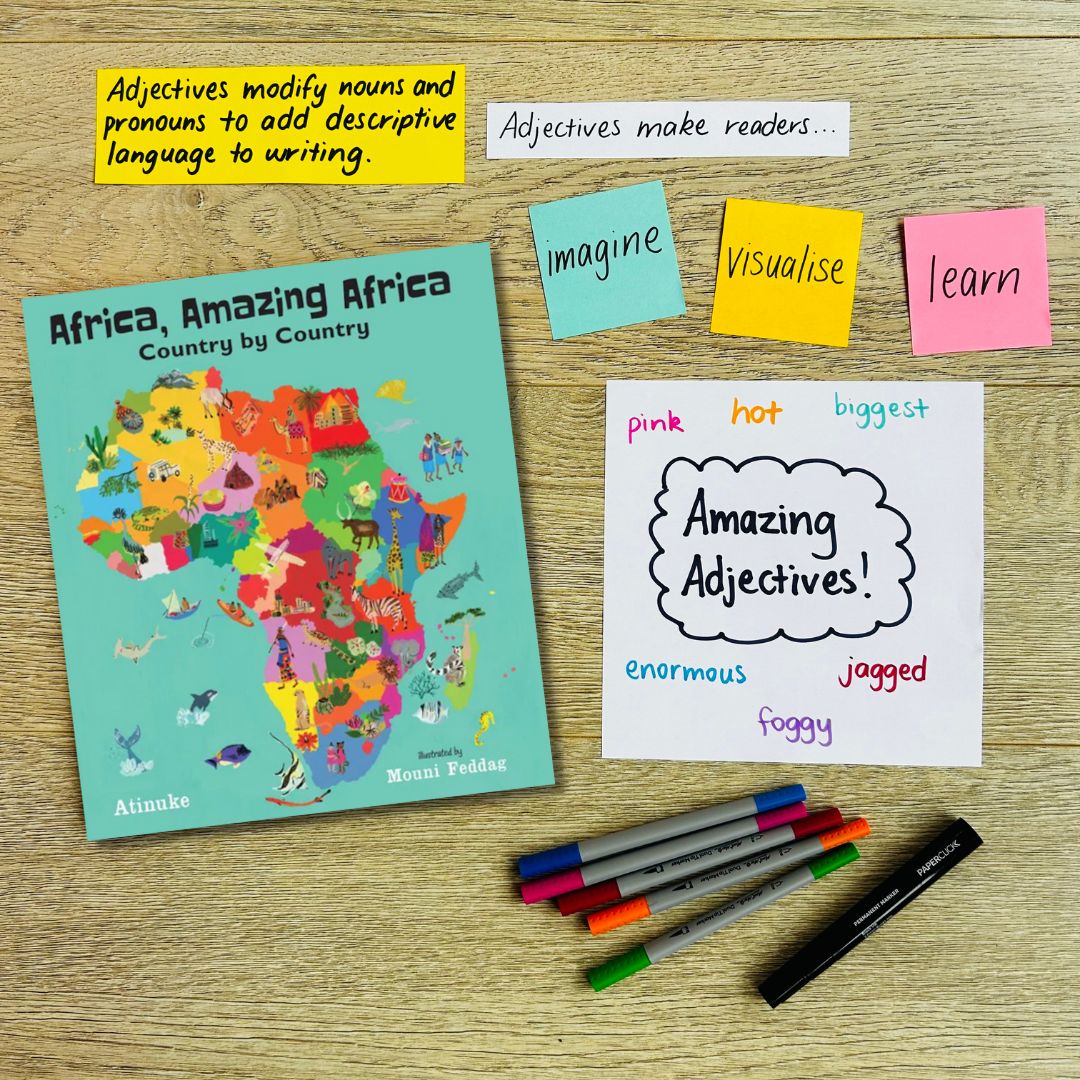 Adjectives modify nouns and
pronouns to add descriptive
language to writing.
Adjectives make readers...
imagine
visualise
learn
Africa, Amazing Africa
Country by Country
Illustrated by
Mouni Feddag
Atinuke
pink hot biggest
Amazing
Adjectives!
enormous jagged
foggy
PERMANENT MARKER
PAPERCLICK